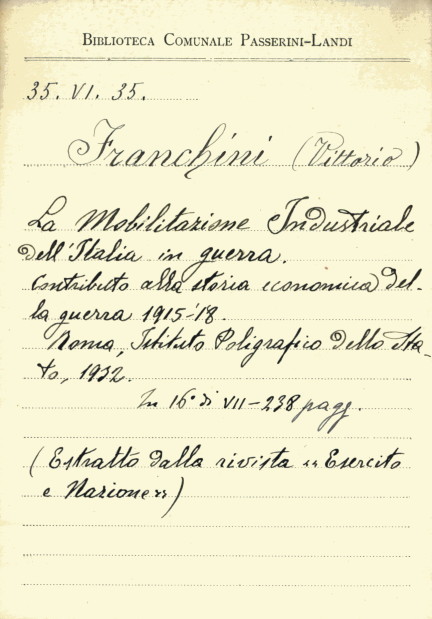 BIBLIOTECA COMUNALE PASSERINI-LANDI
35. VI. 35.
Franchini (Vittorio)
La Mobilitazione Industriale
dell'Italia in guerra.
Contributo alla storia economica del-
la guerra 1915-'18.
Roma, Istituto Poligrafico dello Sta-
to, 1932.
In 16° di VII-238 pagg.
(Estratto dalla rivista «Esercito
e Nazione»)